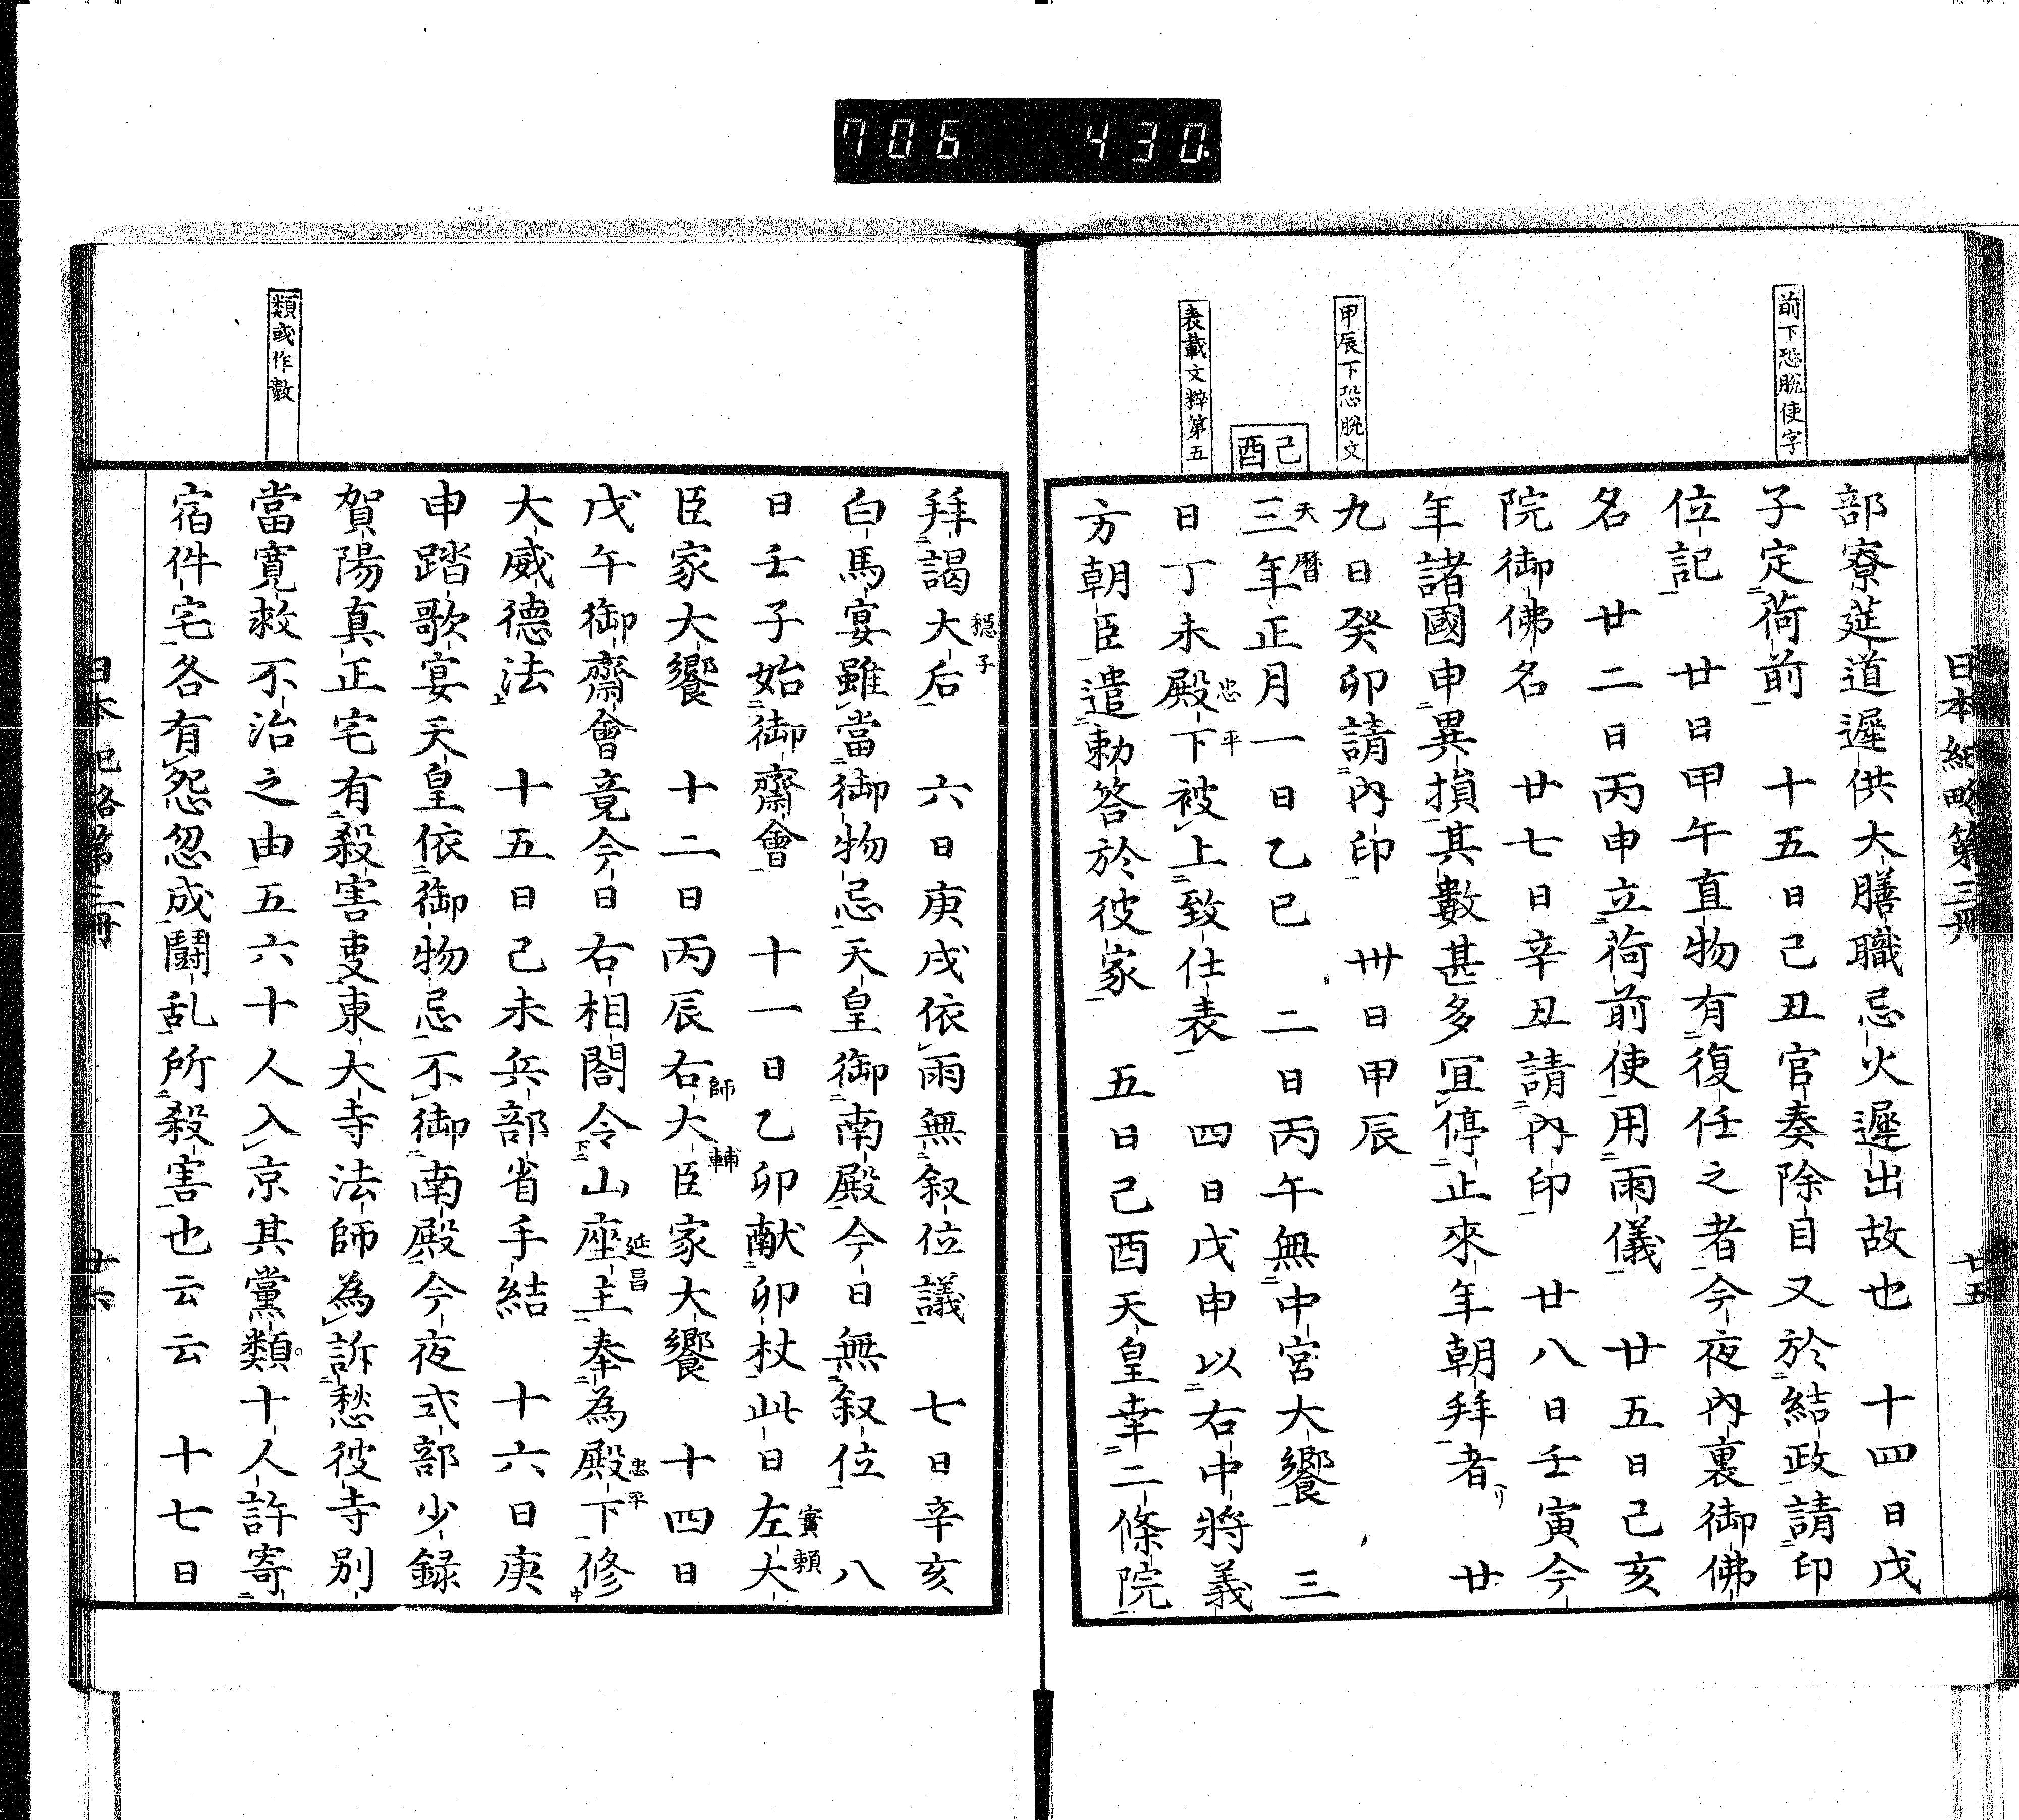 706 430.
日本紀略第三冊 廿五
前下恐脱使字
甲辰下恐脱文
己酉
表載文粹第五
部寮莚道遲供大膳職忌火遲出故也 十四日戊
子定荷前 十五日己丑官奏除目又於結政請印
位記 廿日甲午直物有復任之者今夜內裏御佛
名 廿二日丙申立荷前使用雨儀 廿五日己亥
院御佛名 廿七日辛丑請內印 廿八日壬寅今
年諸國申異損其數甚多冝停止來年朝拜者 廿
九日癸卯請內印 卅日甲辰
天曆三年正月一日乙巳 二日丙午無中宮大饗 三
日丁未殿下忠平被上致仕表 四日戊申以右中將義
方朝臣遣勅答於彼家 五日己酉天皇幸二條院
拜謁大后穩子 六日庚戌依雨無叙位議 七日辛亥
白馬宴雖當御物忌天皇御南殿今日無叙位 八
日壬子始御齋會 十一日乙卯献卯杖此日左大實賴
臣家大饗 十二日丙辰右大臣師輔家大饗 十四日
戊午御齋會竟今日右相閤令山座主延昌奉為殿下忠平修
大威德法 十五日己未兵部省手結 十六日庚
申踏歌宴天皇依御物忌不御南殿今夜式部少錄
賀陽真正宅有殺害叓東大寺法師為訴愁彼寺別
當寬救不治之由五六十人入京其黨類十人許寄
宿件宅各有怨忽成鬪乱所殺害也云云 十七日
類或作數
日本紀略第三冊 廿六